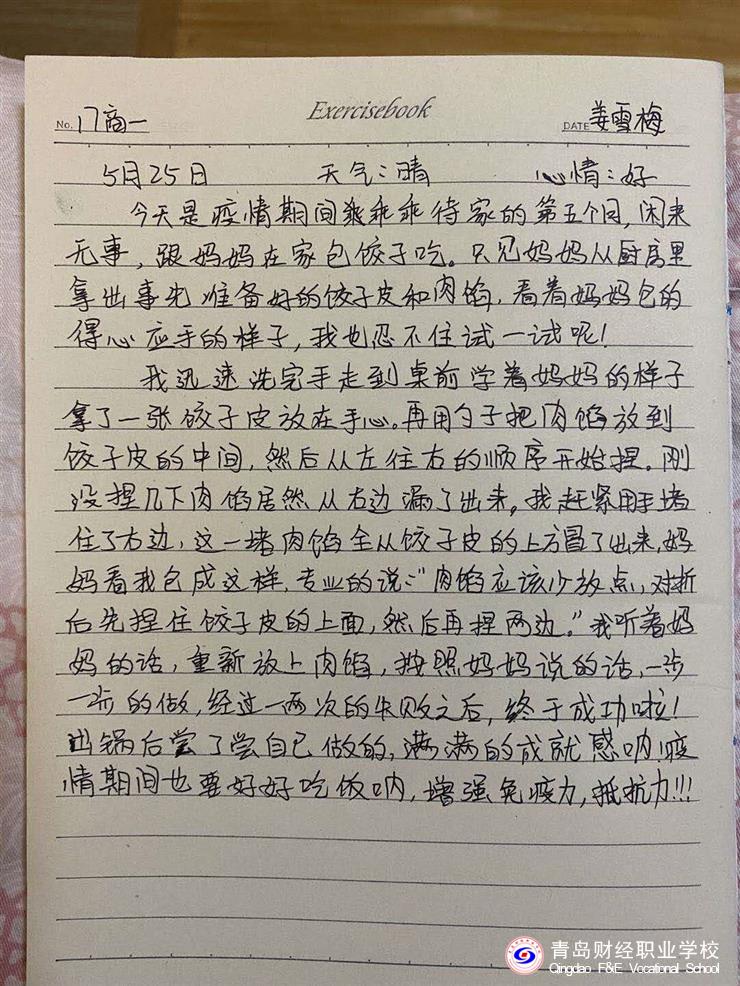 Exercisebook
No. 17商一
DATE 姜雪梅
5月25日 天气:晴 心情:好
今天是疫情期间乖乖待家的第五个月,闲来
无事,跟妈妈在家包饺子吃。只见妈妈从厨房里
拿出事先准备好的饺子皮和肉馅,看着妈妈包的
得心应手的样子,我也忍不住试一试呢!
我迅速洗完手走到桌前学着妈妈的样子
拿了一张饺子皮放在手心。再用勺子把肉馅放到
饺子皮的中间,然后从左往右的顺序开始捏。刚
没捏几下肉馅居然从右边漏了出来,我赶紧用手堵
住了右边,这一堵肉馅全从饺子皮的上方冒了出来,妈
妈看我包成这样,专业的说:“肉馅应该少放点,对折
后先捏住饺子皮的上面,然后再捏两边。”我听着妈
妈的话,重新放上肉馅,按照妈妈说的话,一步
一步的做,经过一两次的失败之后,终于成功啦!
出锅后尝了尝自己做的,满满的成就感呐!疫
情期间也要好好吃饭呐,增强免疫力,抵抗力!!!
青岛财经职业学校
Qingdao F&E Vocational School